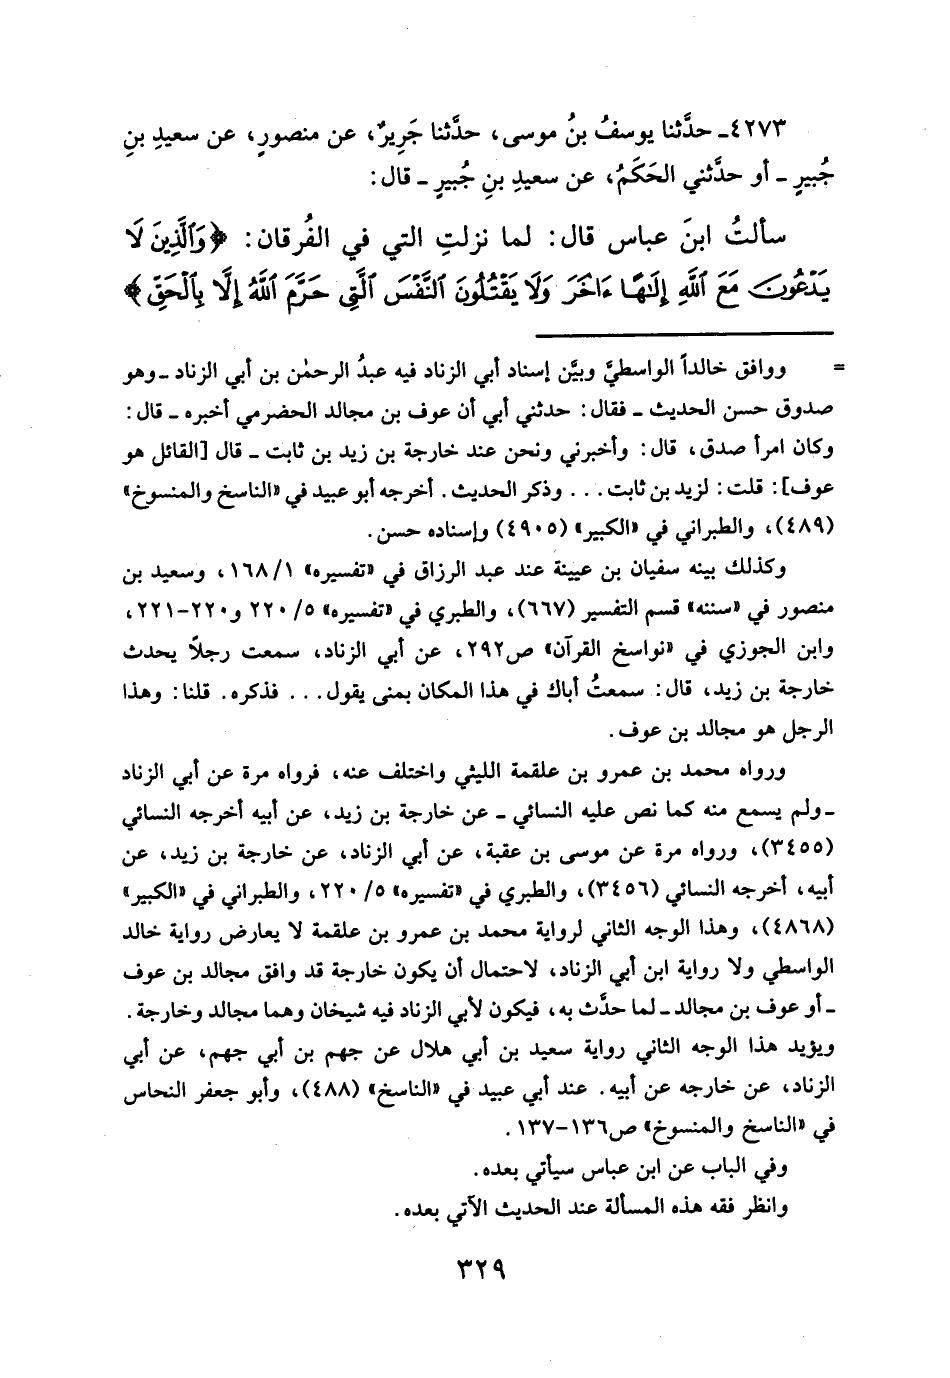 ٤٢٧٣ـ حدَّثنا يوسفُ بنُ موسى، حدَّثنا جَرِيرٌ، عن منصورٍ، عن سعيدِ بنِ
جُبيرٍ ـ أو حدَّثني الحَكَمُ، عن سعيدِ بنِ جُبيرٍ ـ قال:
سألتُ ابنَ عباس قال: لما نزلتِ التي في الفُرقان: ﴿وَٱلَّذِينَ لَا
يَدْعُونَ مَعَ ٱللَّهِ إِلَٰهًا ءَاخَرَ وَلَا يَقْتُلُونَ ٱلنَّفْسَ ٱلَّتِى حَرَّمَ ٱللَّهُ إِلَّا بِٱلْحَقِّ﴾
= ووافق خالداً الواسطيَّ وبيَّن إسناد أبي الزناد فيه عبدُ الرحمٰن بن أبي الزناد ـ وهو
صدوق حسن الحديث ـ فقال: حدثني أبي أن عوف بن مجالد الحضرمي أخبره ـ قال:
وكان امرأ صدق، قال: وأخبرني ونحن عند خارجة بن زيد بن ثابت ـ قال [القائل هو
عوف]: قلت: لزيد بن ثابت . . . وذكر الحديث. أخرجه أبو عبيد في «الناسخ والمنسوخ»
(٤٨٩)، والطبراني في «الكبير» (٤٩٠٥) وإسناده حسن.
وكذلك بينه سفيان بن عيينة عند عبد الرزاق في «تفسيره» ١/ ١٦٨، وسعيد بن
منصور في «سننه» قسم التفسير (٦٦٧)، والطبري في «تفسيره» ٥/ ٢٢٠ و٢٢٠-٢٢١،
وابن الجوزي في «نواسخ القرآن» ص٢٩٢، عن أبي الزناد، سمعت رجلاً يحدث
خارجة بن زيد، قال: سمعتُ أباك في هذا المكان بمنى يقول . . . فذكره. قلنا: وهذا
الرجل هو مجالد بن عوف.
ورواه محمد بن عمرو بن علقمة الليثي واختلف عنه، فرواه مرة عن أبي الزناد
ـ ولم يسمع منه كما نص عليه النسائي ـ عن خارجة بن زيد، عن أبيه أخرجه النسائي
(٣٤٥٥)، ورواه مرة عن موسى بن عقبة، عن أبي الزناد، عن خارجة بن زيد، عن
أبيه، أخرجه النسائي (٣٤٥٦)، والطبري في «تفسيره» ٥/ ٢٢٠، والطبراني في «الكبير»
(٤٨٦٨)، وهذا الوجه الثاني لرواية محمد بن عمرو بن علقمة لا يعارض رواية خالد
الواسطي ولا رواية ابن أبي الزناد، لاحتمال أن يكون خارجة قد وافق مجالد بن عوف
ـ أو عوف بن مجالد ـ لما حدَّث به، فيكون لأبي الزناد فيه شيخان وهما مجالد وخارجة.
ويؤيد هذا الوجه الثاني رواية سعيد بن أبي هلال عن جهم بن أبي جهم، عن أبي
الزناد، عن خارجه عن أبيه. عند أبي عبيد في «الناسخ» (٤٨٨)، وأبو جعفر النحاس
في «الناسخ والمنسوخ» ص١٣٦-١٣٧.
وفي الباب عن ابن عباس سيأتي بعده.
وانظر فقه هذه المسألة عند الحديث الآتي بعده.
٣٢٩